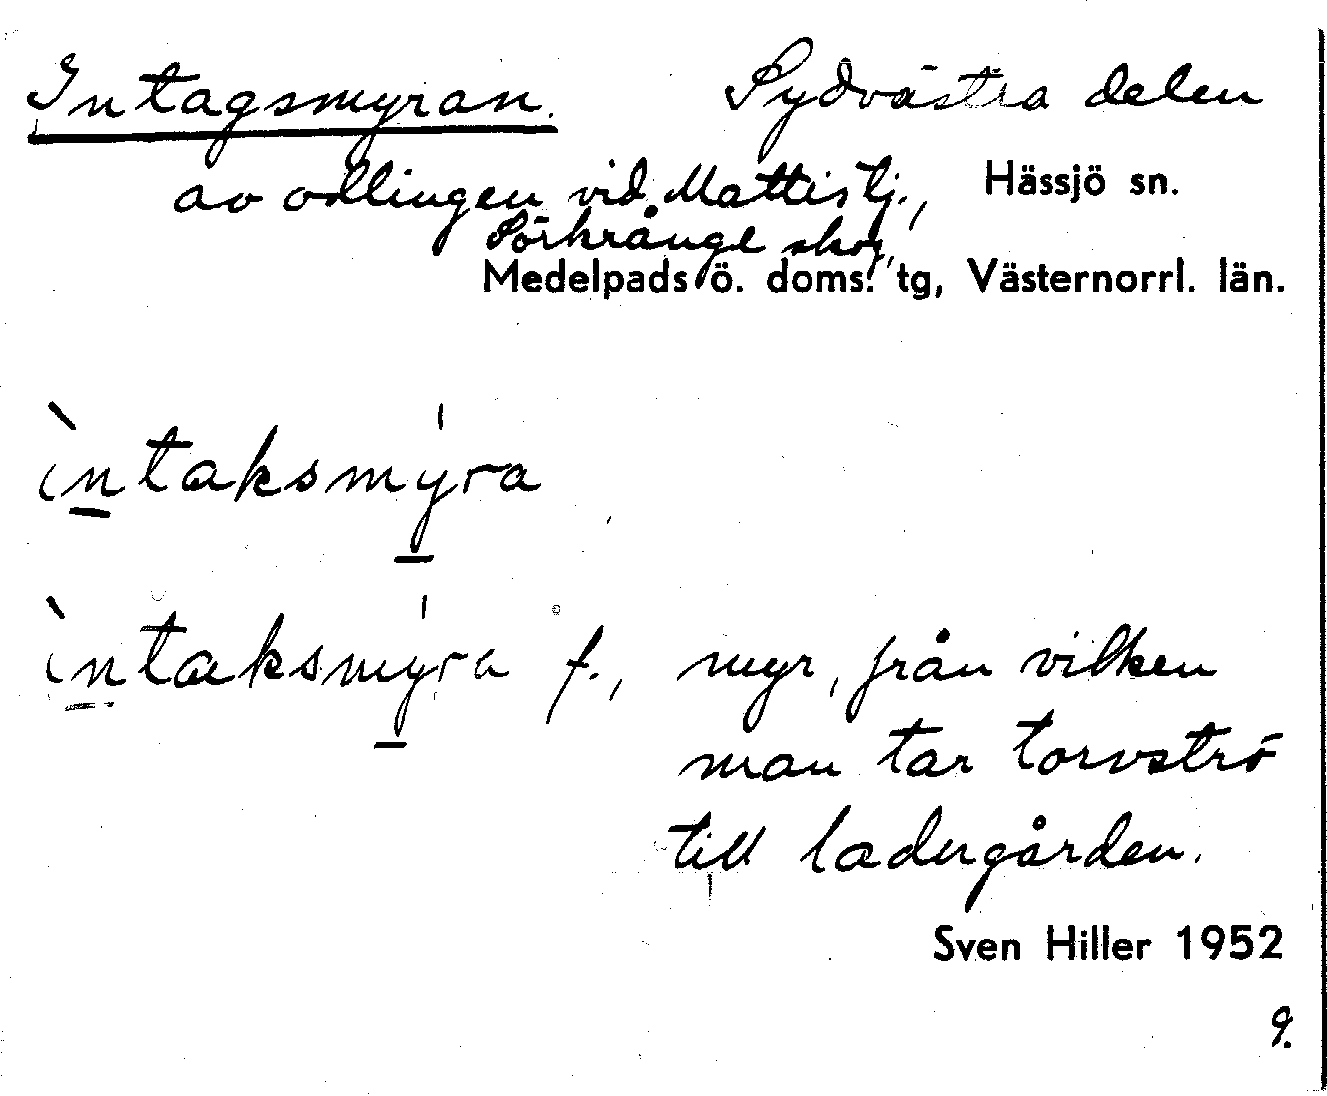 Intagsmyran. Sydvästra delen
av odlingen vid Mattistj., Hässjö sn.
Sörkrånge skog,
Medelpads ö. doms. tg, Västernorrl. län.
ìntaksmýra
ìntaksmýra f., myr, från vilken
man tar torvströ
till ladugården.
Sven Hiller 1952
9.